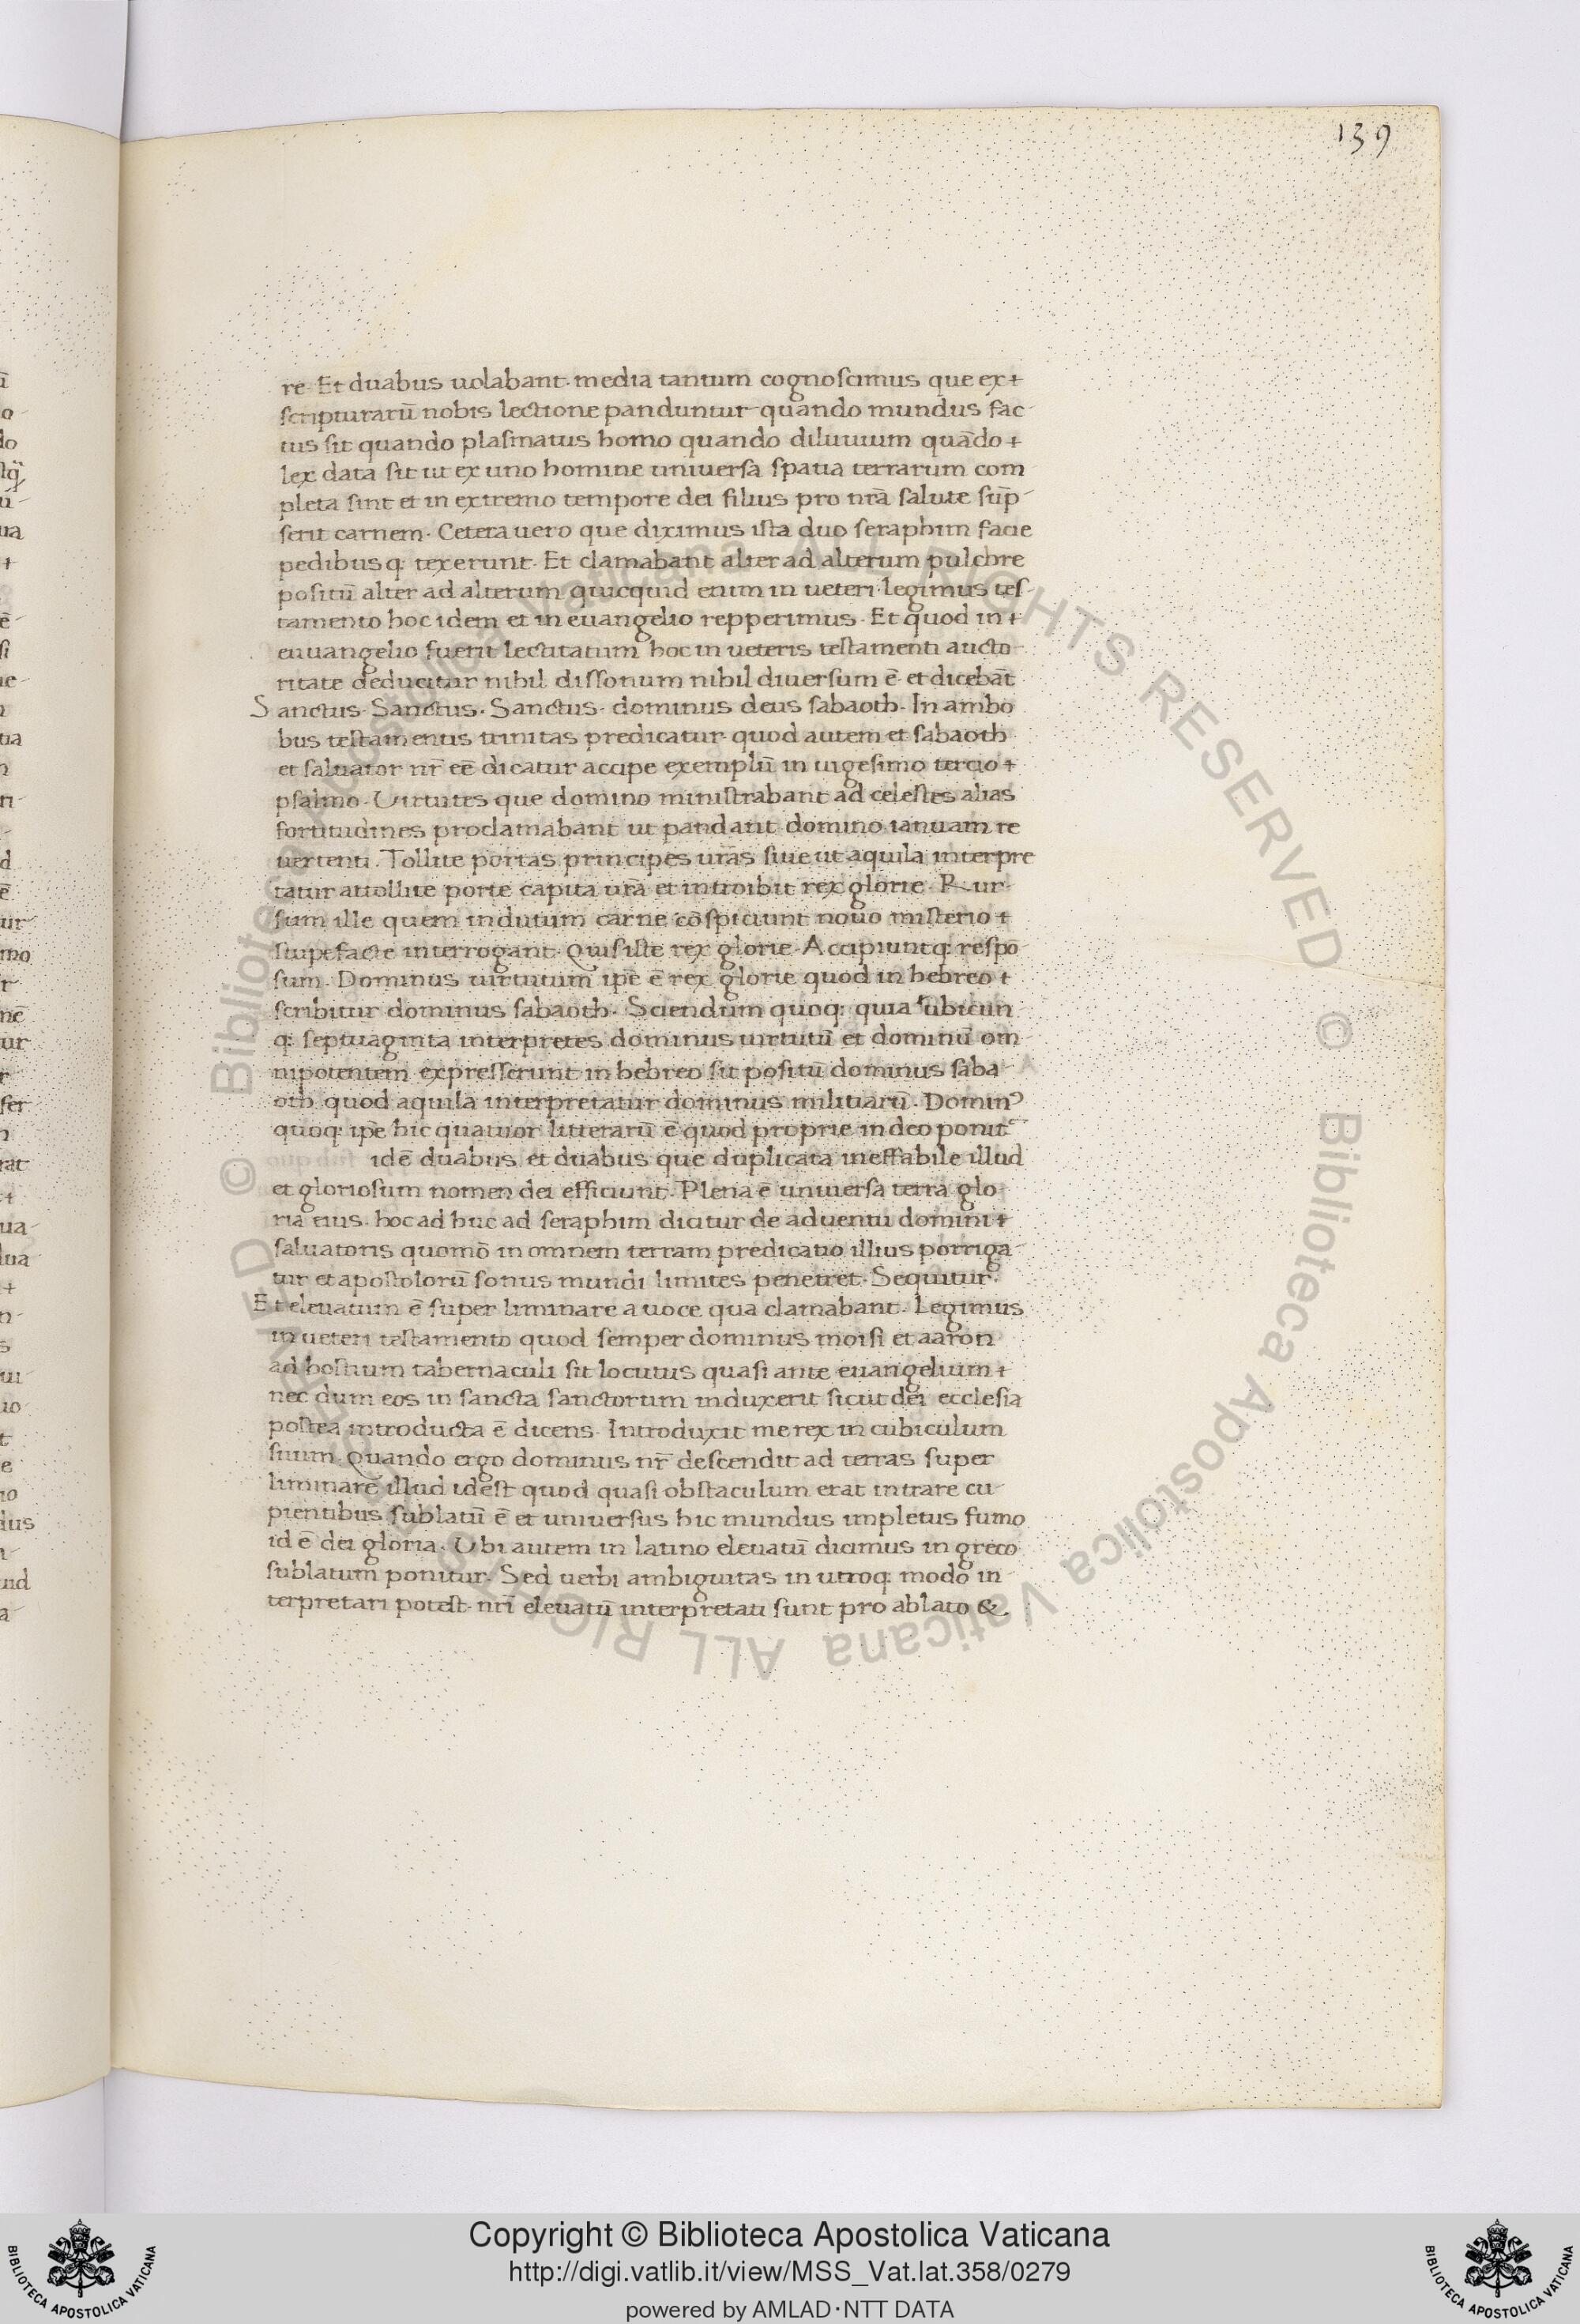 139
re. Et duabus uolabant. media tantum cognoscimus que ex+
scripturarū nobis lectione panduntur quando mundus fac-
tus sit quando plasmatus homo quando diluuium quādo +
lex data sit ut ex uno homine uniuersa spatia terrarum com
pleta sint et in extremo tempore dei filius pro nr̄a salute sūp-
serit carnem. Cetera uero que diximus ista duo seraphim facie
pedibusq: texerunt. Et clamabant alter ad alterum pulchre
positū alter ad alterum quicquid enim in ueteri legimus tes-
tamento hoc idem et in euangelio repperimus. Et quod in +
euuangelio fuerit lectitatum hoc in ueteris testamenti aucto-
ritate deducitur nihil dissonum nihil diuersum ē. et dicebāt
Sanctus. Sanctus. Sanctus. dominus deus sabaoth. In ambo
bus testamentis trinitas predicatur. quod autem et sabaoth
et saluator nr̄ eē dicatur accipe exemplū in uigesimo tercio +
psalmo. Uirtutes que domino ministrabant ad celestes alias
fortitudines proclamabant ut pandant domino ianuam re
uertenti. Tollite portas principes ur̄as siue ut aquila interpre
tatur attollite porte capita ur̄a et introibit rex glorie. Rur-
sum ille quem indutum carne cōspiciunt nouo misterio +
stupefacte interrogant. Quis iste rex glorie. Accipiuntq: respō
sum. Dominus uirtutum ip̄e ē rex glorie quod in hebreo +
scribitur dominus sabaoth. Sciendum quoq: quia ubicun
q: septuaginta interpretes dominus uirtutū et dominū om
nipotentem expresserunt in hebreo sit positū dominus saba-
oth quod aquila interpretatur dominus militiarū. Domin⁹
quoq: ip̄e hic quatuor litterarū ē quod proprie in deo ponit
idē duabus et duabus que duplicata ineffabile illud
et gloriosum nomen dei efficiunt. Plena ē uniuersa terra glo-
ria eius. hoc ad huc ad seraphim dicitur de aduentu domini +
saluatoris quomō in omnem terram predicatio illius porriga-
tur et apostolorū sonus mundi limites penetret. Sequitur.
Et eleuatum ē super liminare a uoce qua clamabant. Legimus
in ueteri testamento quod semper dominus moisi et aaron
ad hostium tabernaculi sit locutus quasi ante euangelium +
nec dum eos in sancta sanctorum induxerit sicut dei ecclesia
postea introducta ē dicens. Introduxit me rex in cubiculum
suum. Quando ergo dominus nr̄ descendit ad terras super
liminare illud idest quod quasi obstaculum erat intrare cu-
pientibus sublatū ē et uniuersus hic mundus impletus fumo
id ē dei gloria. Ubi autem in latino eleuatū dicimus in greco
sublatum ponitur. Sed uerbi ambiguitas in utroq: modo in-
terpretari potest. nr̄i eleuatū interpretati sunt pro ablato &.
Copyright © Biblioteca Apostolica Vaticana
http://digi.vatlib.it/view/MSS_Vat.lat.358/0279
powered by AMLAD·NTT DATA
BIBLIOTECA APOSTOLICA VATICANA
BIBLIOTECA APOSTOLICA VATICANA